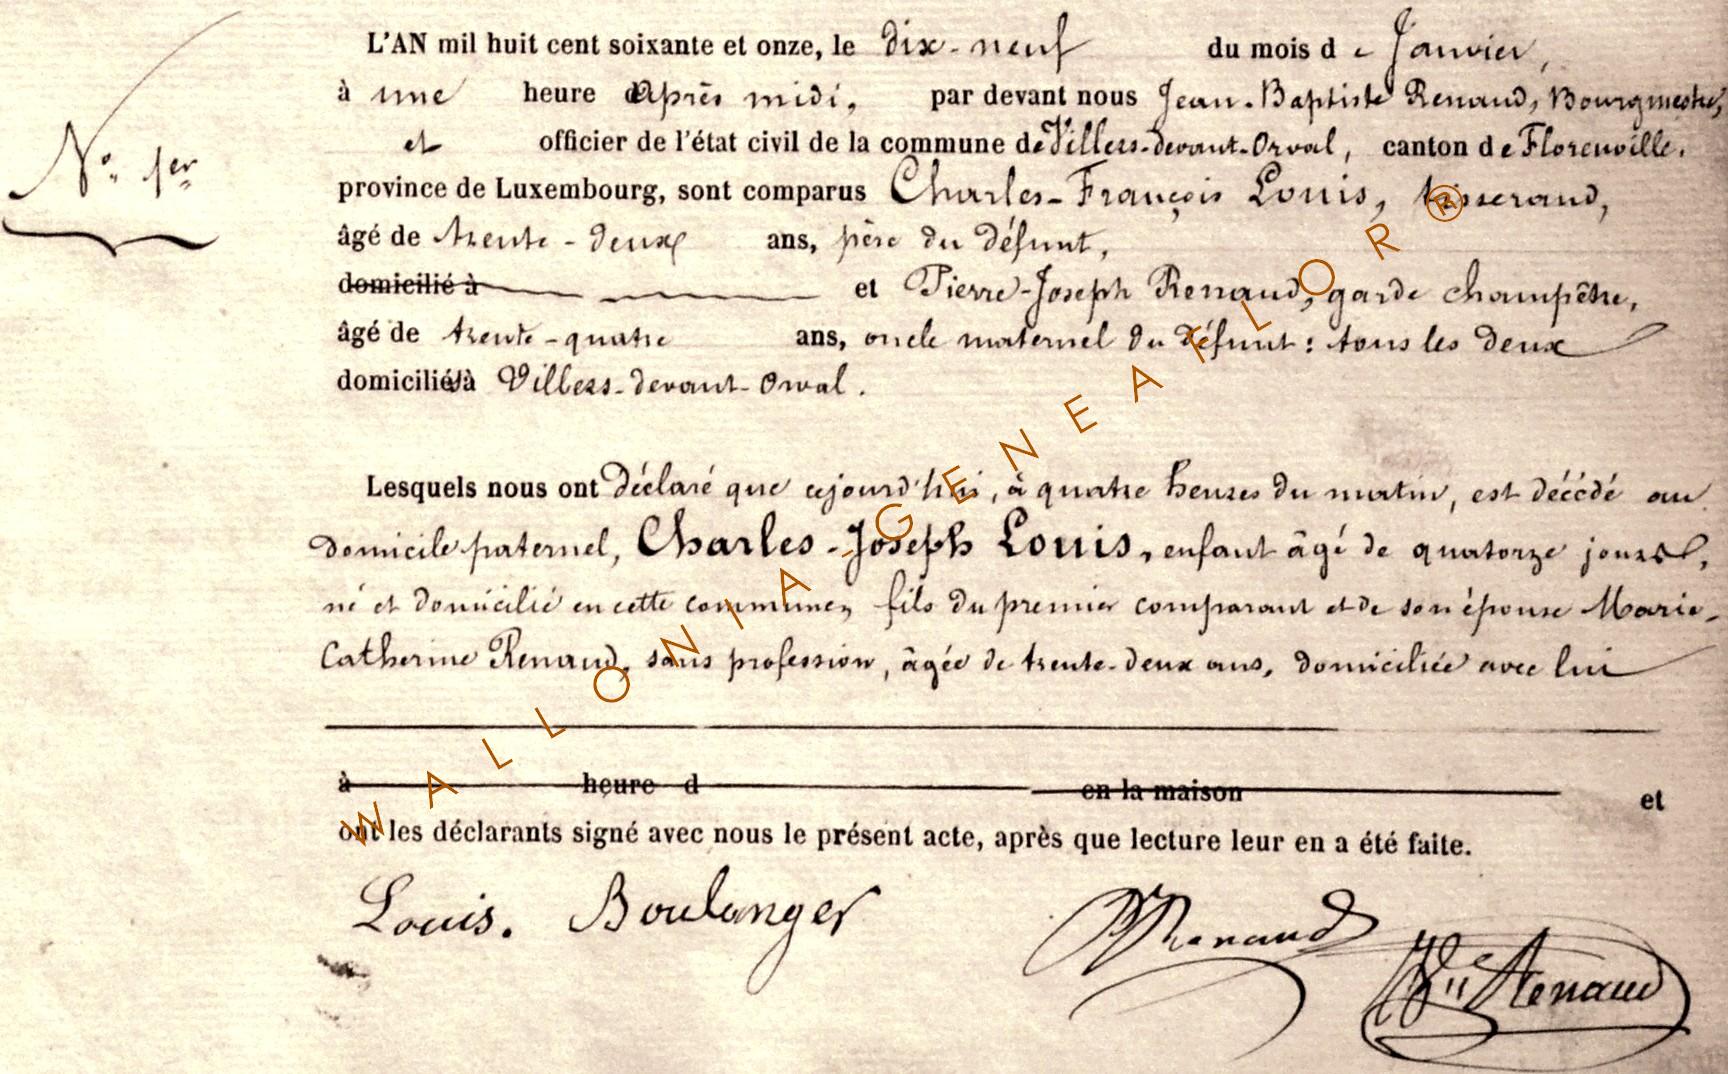 L'AN mil huit cent soixante et onze, le dix-neuf du mois de Janvier,
à une heure après midi, par devant nous Jean-Baptiste Renaud, Bourgmestre,
et officier de l'état civil de la commune de Villers-devant-Orval, canton de Florenville,
N° 1er
province de Luxembourg, sont comparus Charles-François Louis, tisserand,
âgé de trente-deux ans, père du défunt,
domicilié à et Pierre-Joseph Renaud, garde champêtre,
âgé de trente-quatre ans, oncle maternel du défunt : tous les deux
domiciliés à Villers-devant-Orval.
Lesquels nous ont déclaré que cejourd'hui, à quatre heures du matin, est décédé au
domicile paternel, Charles-Joseph Louis, enfant âgé de quatorze jours,
né et domicilié en cette commune, fils du premier comparant et de son épouse Marie-
Catherine Renaud, sans profession, âgée de trente-deux ans, domiciliée avec lui
à heure d en la maison et
ont les déclarants signé avec nous le présent acte, après que lecture leur en a été faite.
Louis. Boulanger Renaud
Renaud
WALLONIA-GENEAFLOR®